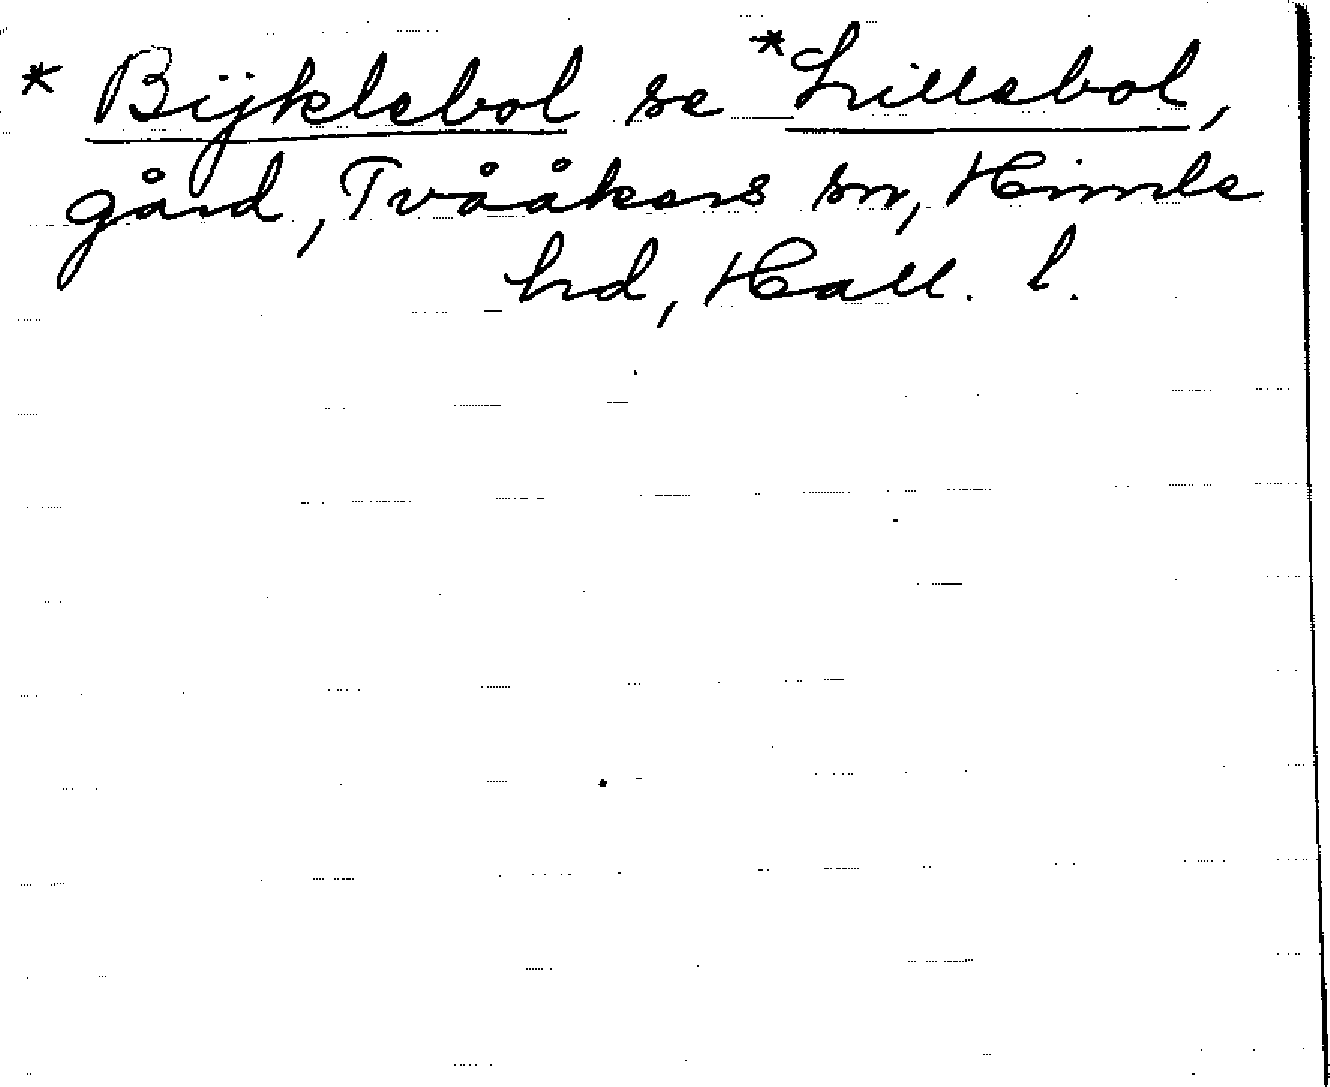 * Bijklebol se *Lillebol,
gård, Tvååkers sn, Himle
hd, Hall. l.